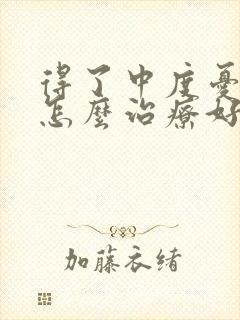 得了中度憂
怎麼治療好
加藤衣緒